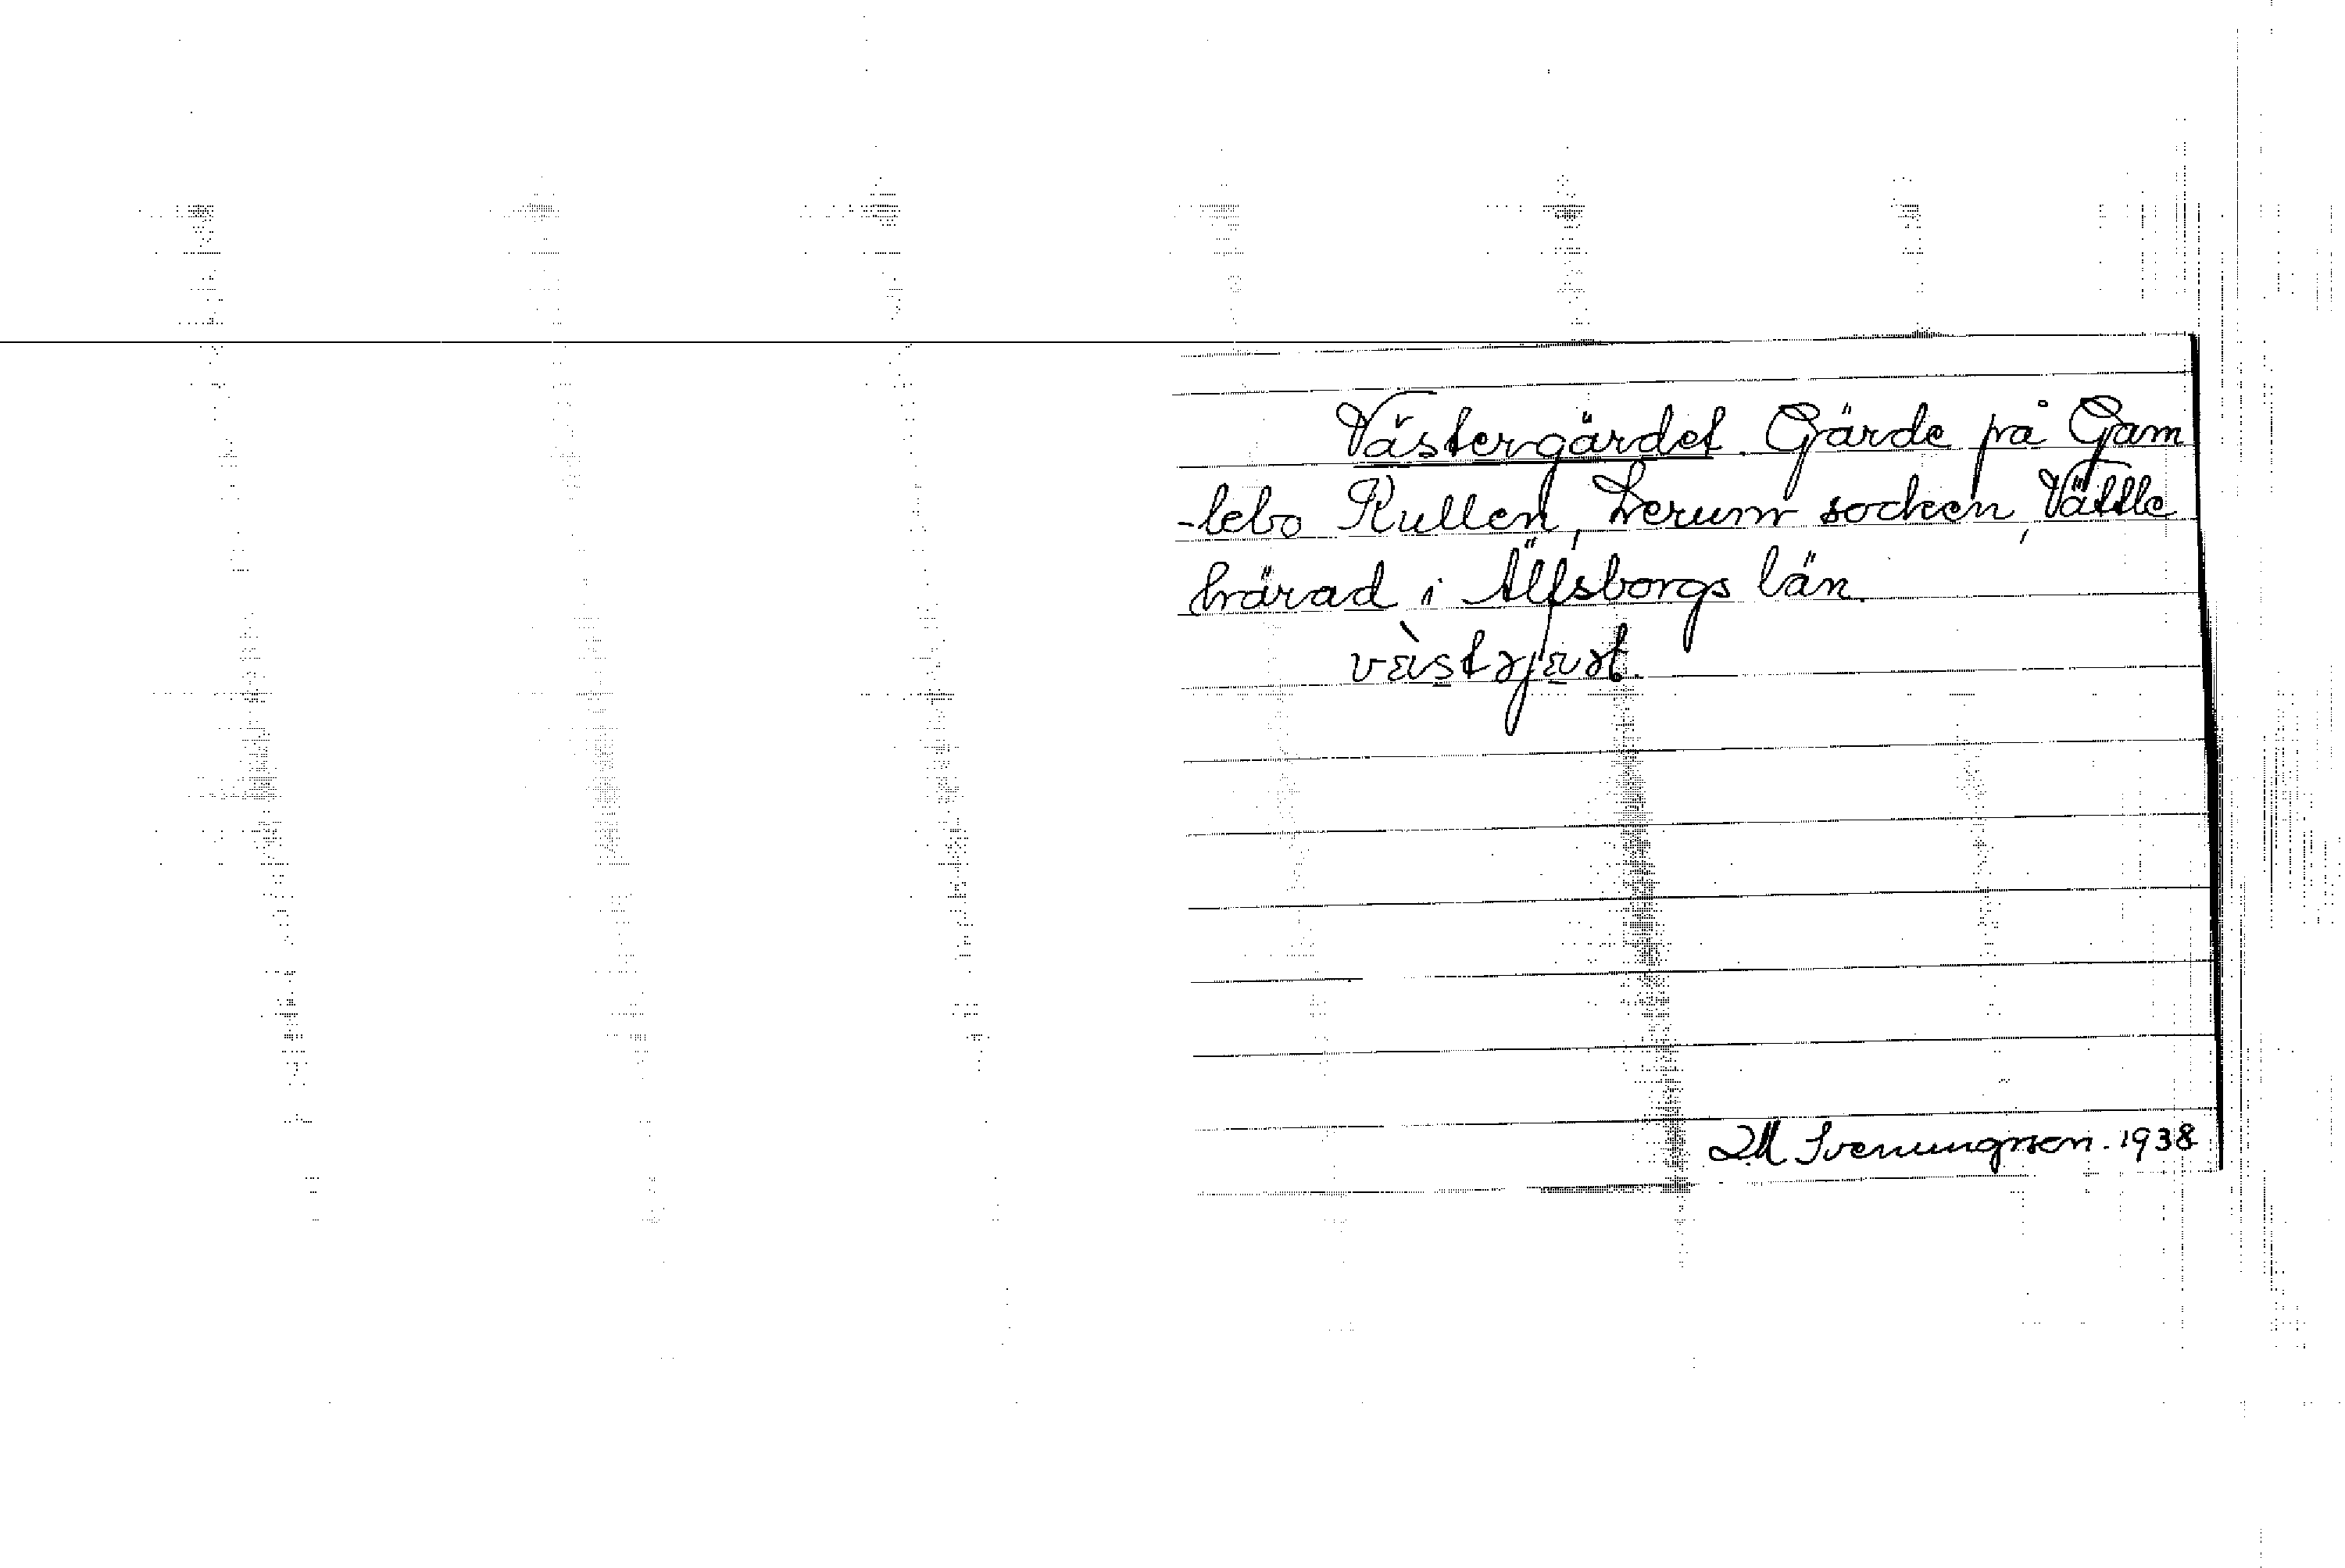 Västergärdet. Gärde på Gam
-lebo Kullen, Lerum socken, Vättle
härad i Älfsborgs län.
Svenungsson. 1938